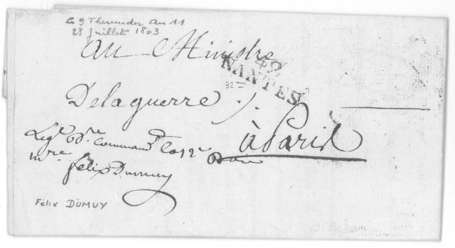 Le 9 Thermidor An 11
28 Juillet 1803
Au Ministre
42
NANTES
Delaguerre
à Paris
Le Gal de Don Command la 12e Don
mre
félix Dumuy
Felix DUMUY